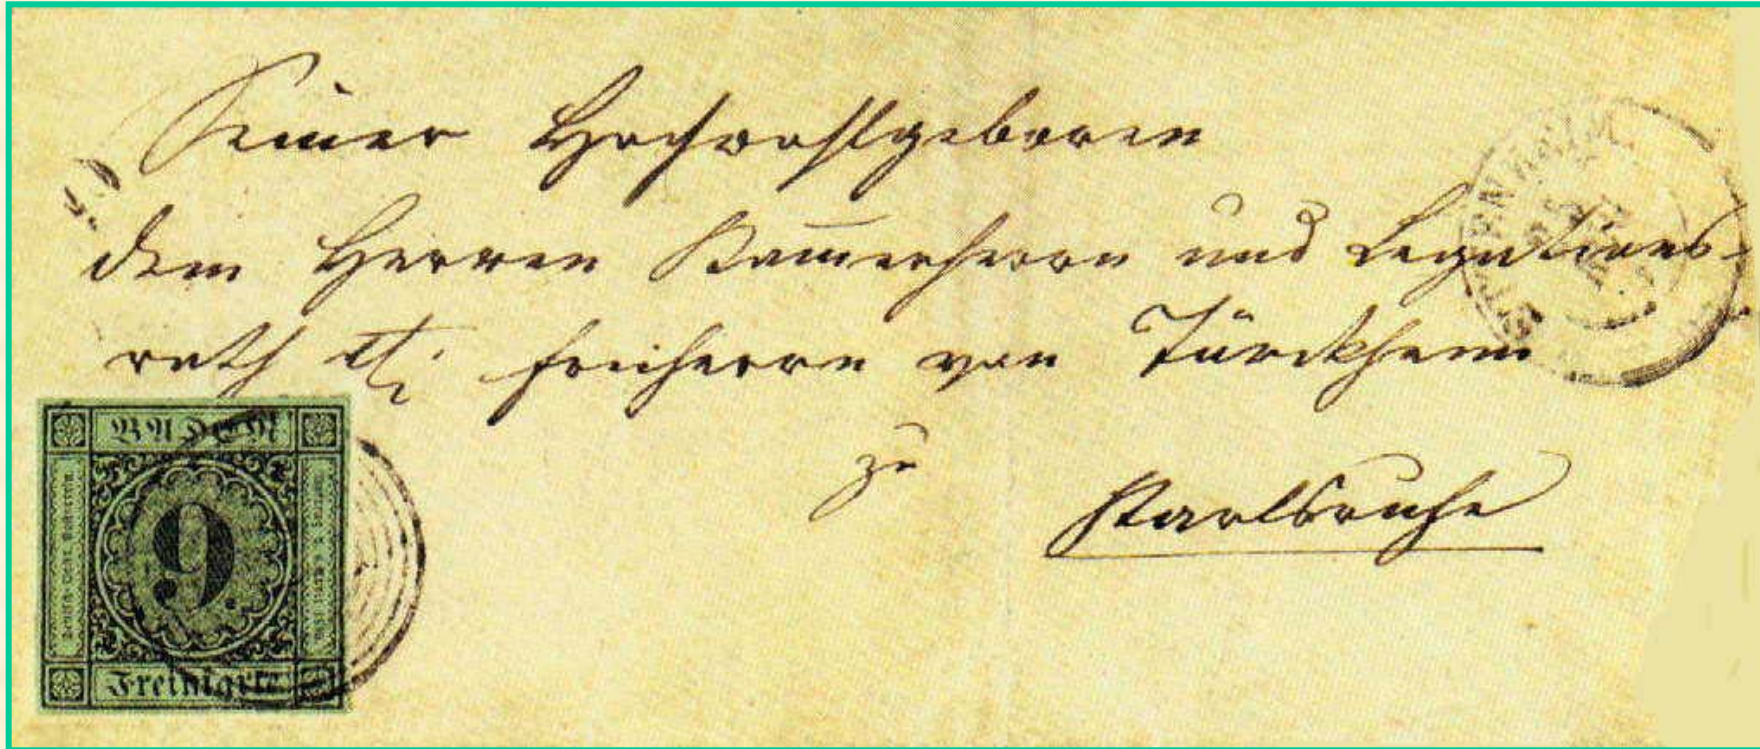 Seiner Hochwohlgeboren
dem Herren Kam̄erherrn und Legations-
rath etc. Freiherrn von Türckheim
zu
Karlsruhe
BADEN
9.
Freimarke